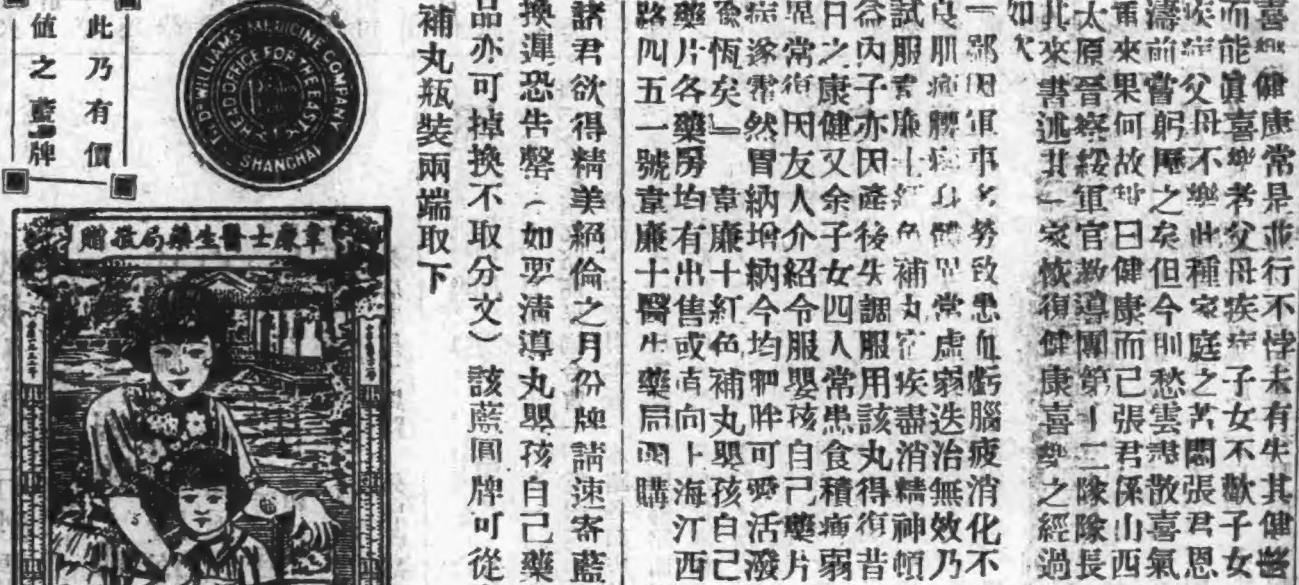 喜樂健康常是並行不悖未有失其健康
而能真喜樂者父母疾病子女不歡子女
疾病父母不樂此種家庭之苦悶張君恩
濤前嘗躬歷之矣但今則愁雲盡散喜氣
重來果何故哉曰健康而已張君係山西
太原晉察綏軍官教導團第十二隊隊長
其來書述其一家恢復健康喜樂之經過
如次
一鄙因軍事多勞致患血虧腦疲消化不
良肌瘠腰痠身體異常虛弱迭治無效乃
試服韋廉士紅色補丸宿疾盡消精神頓
益內子亦因產後失調服用該丸得復昔
日之康健又余子女四人常患食積痛弱
異常復因友人介紹令服嬰孩自己藥片
病遂霍然胃納增納今均肥胖可愛活潑
逾恆矣』韋廉士紅色補丸嬰孩自己
藥片各藥房均有出售或直向上海江西
路四五一號韋廉士醫生藥局函購
諸君欲得精美絕倫之月份牌請速寄藍
換遲恐告罄（如要清導丸嬰孩自己藥
品亦可掉換不取分文）該藍圓牌可從
補丸瓶裝兩端取下
此乃有價
值之藍牌
DR WILLIAMS' MEDICINE COMPANY
HEAD OFFICE FOR THE EAST
SHANGHAI
韋廉士醫生藥局敬贈